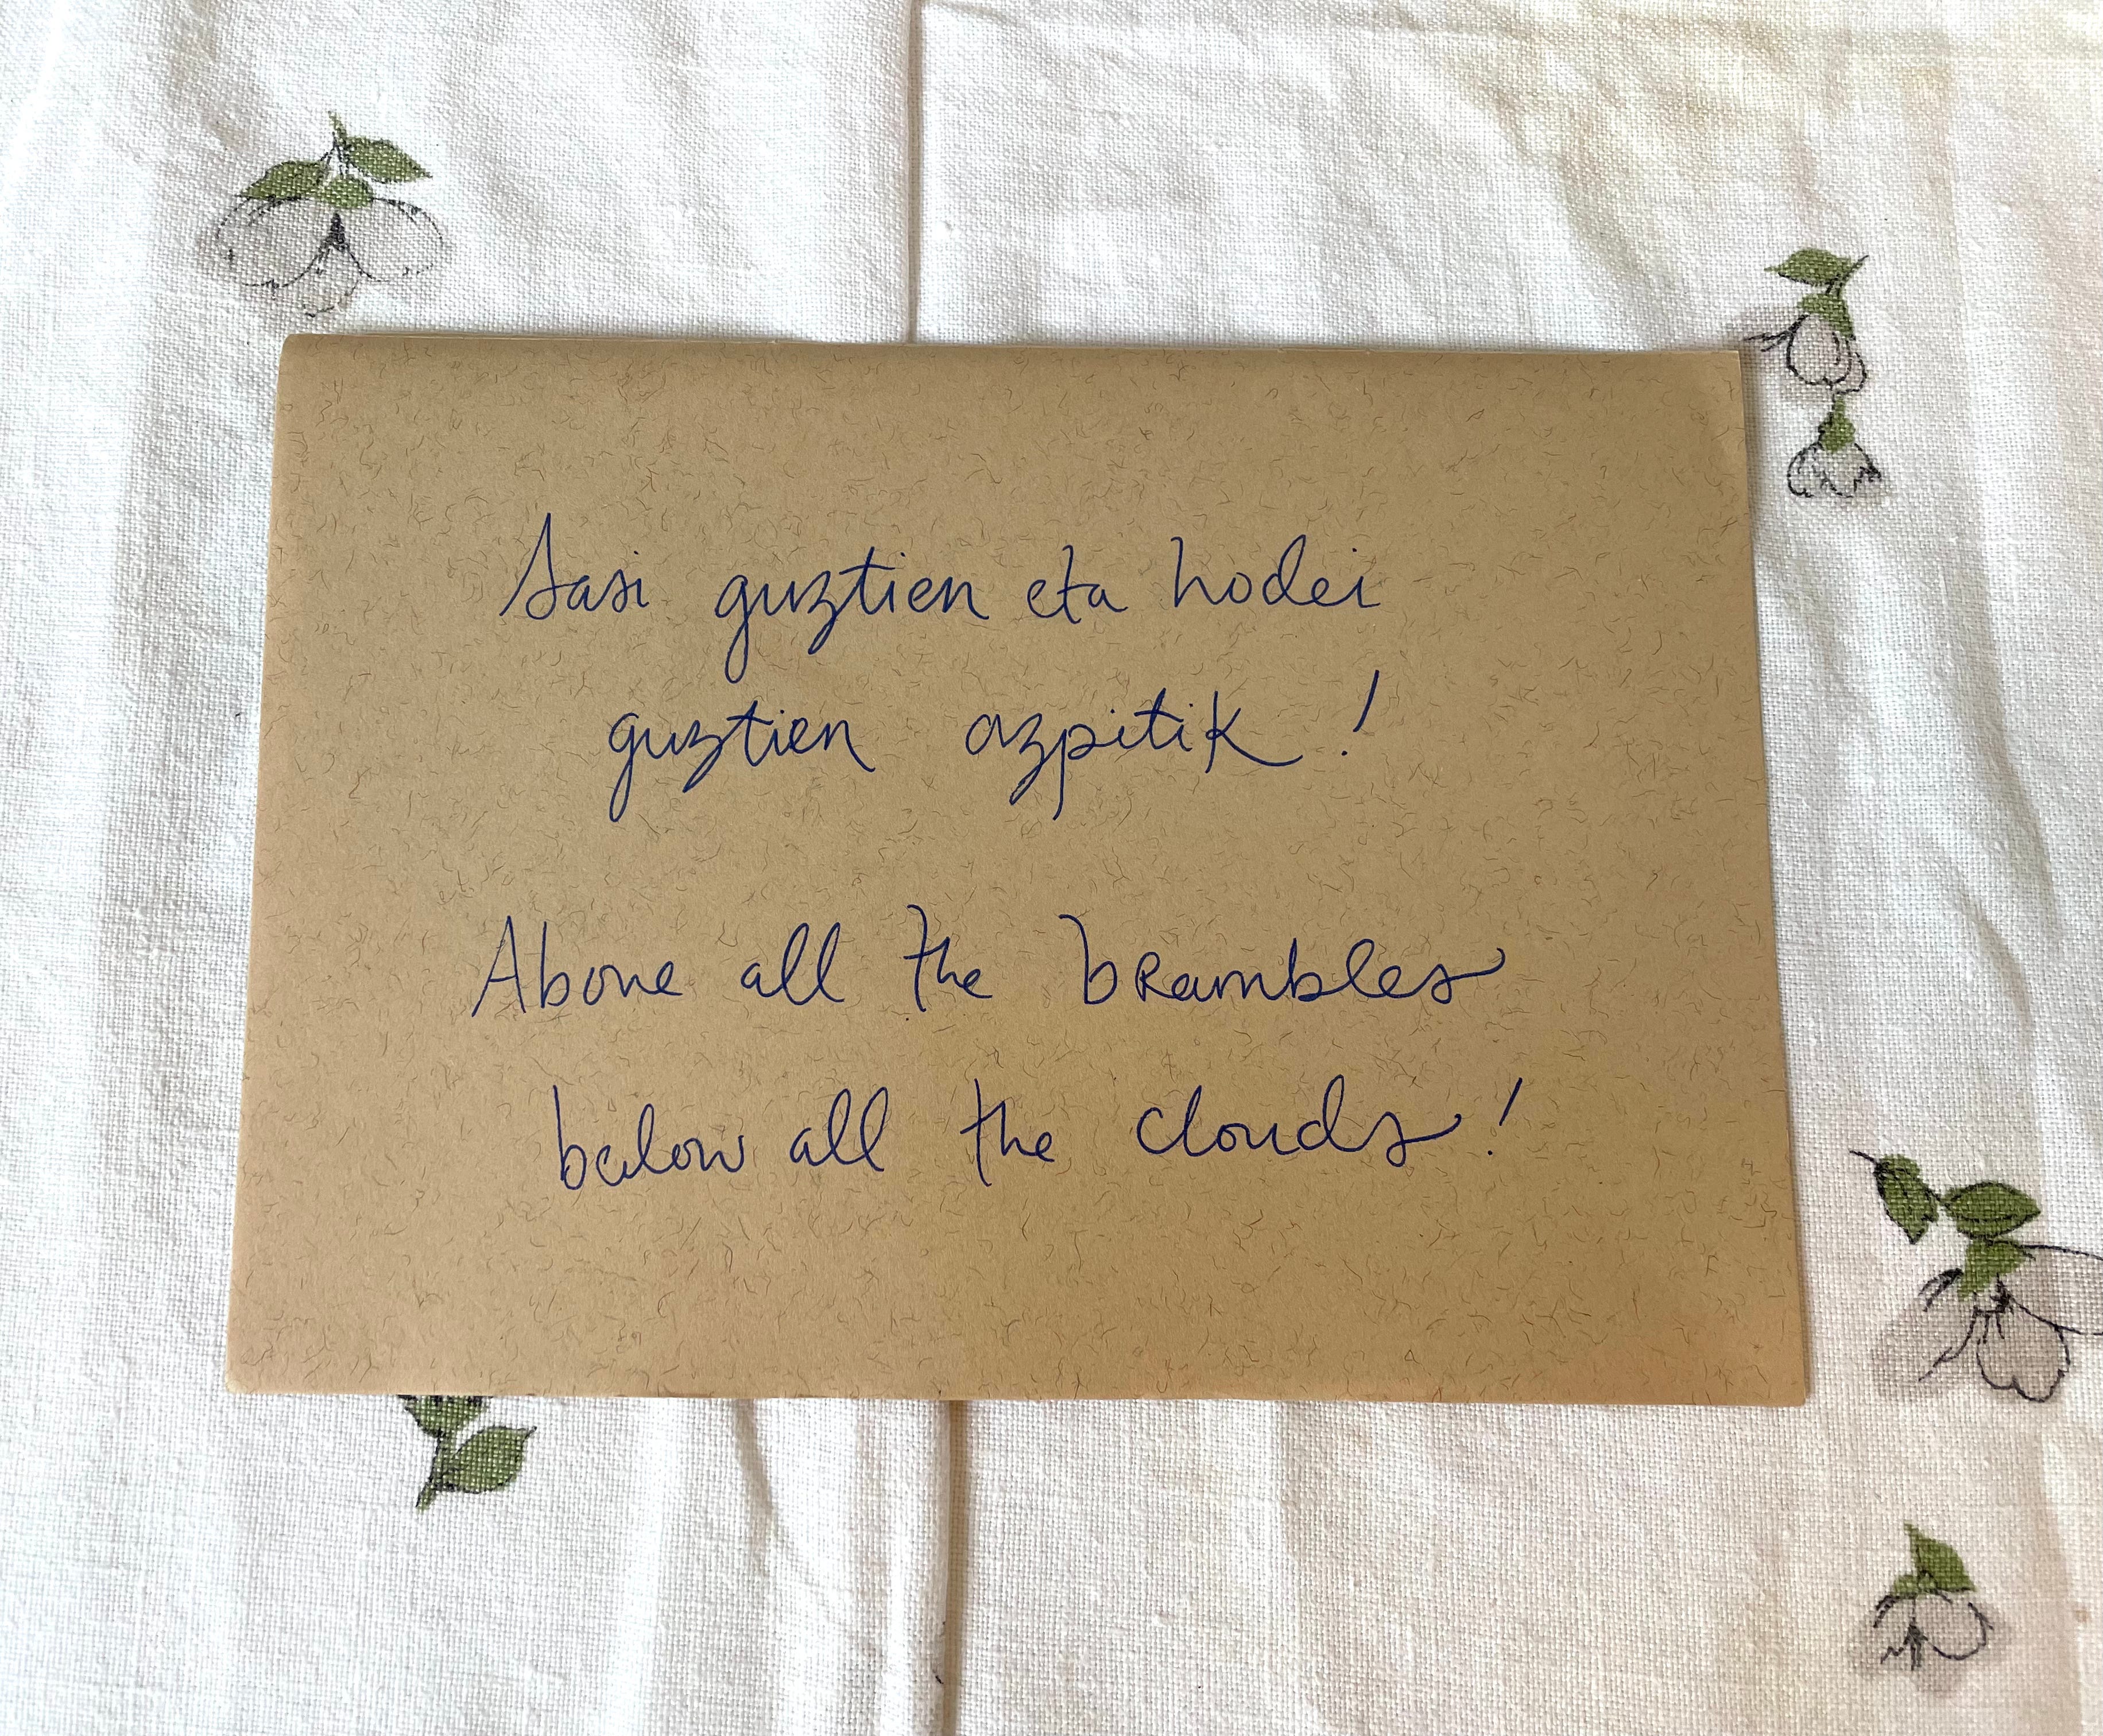 Sasi guztien eta hodei
guztien azpitik!
Above all the brambles
below all the clouds!